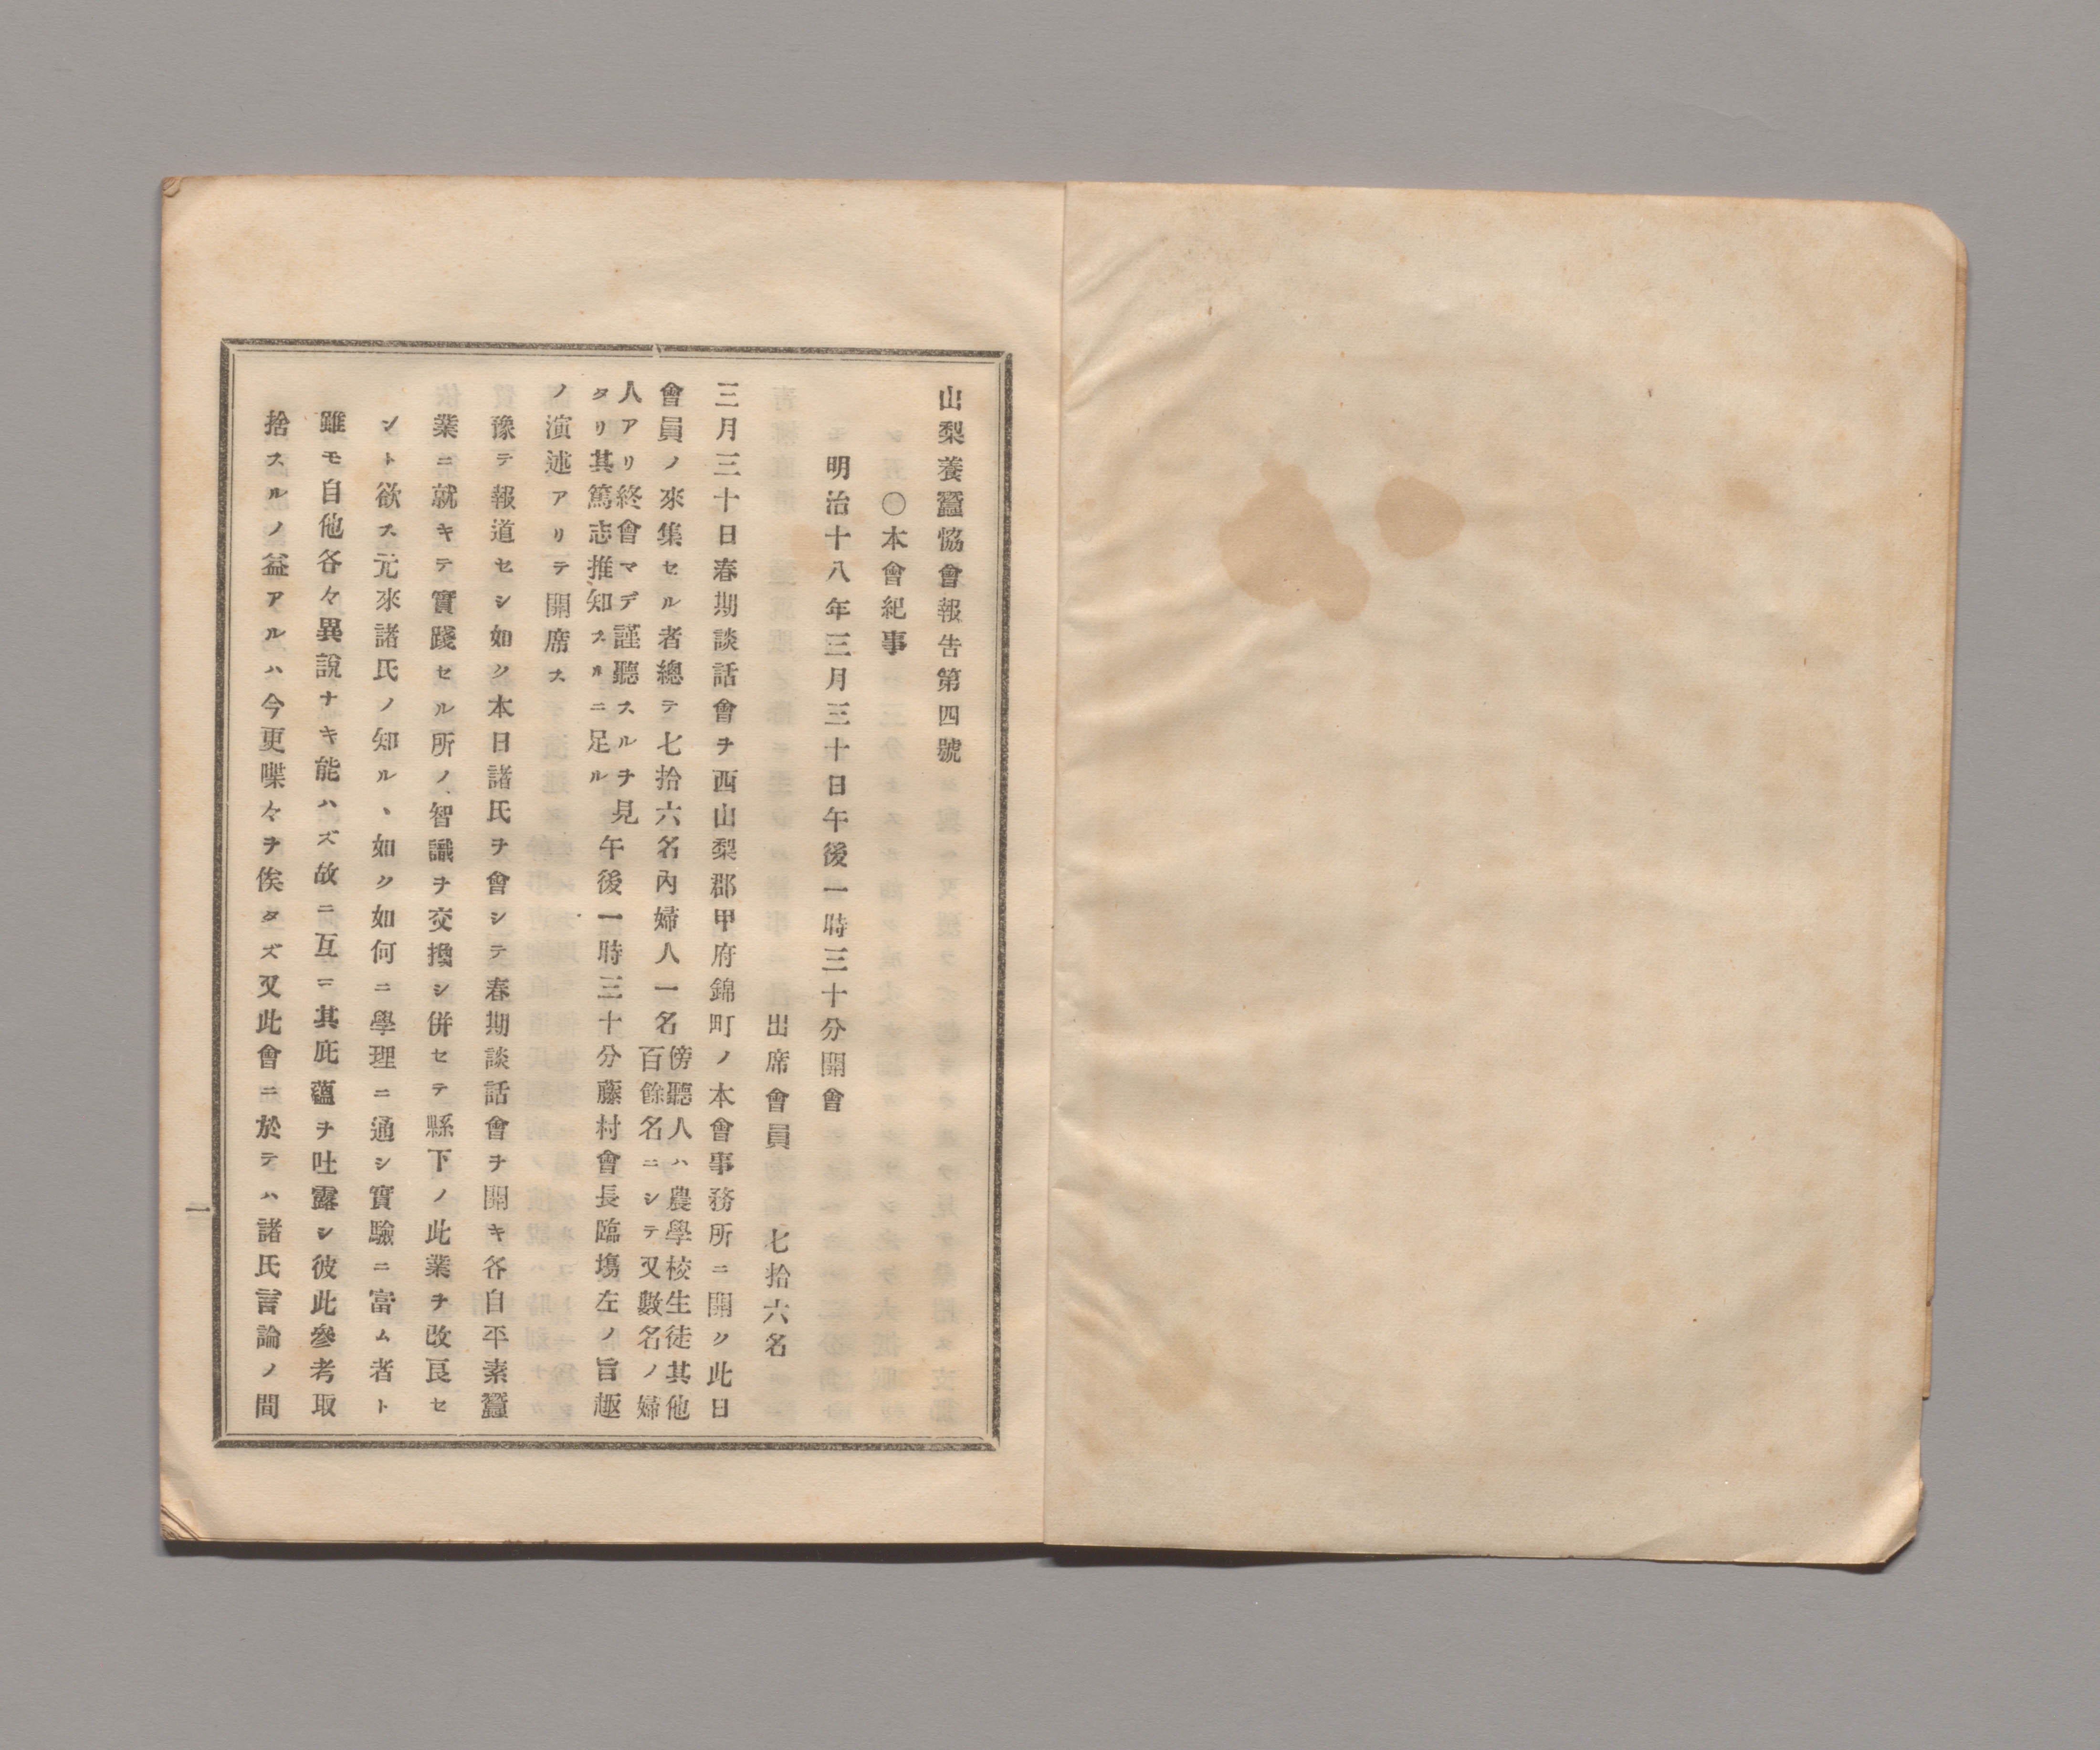 山梨養蠶恊會報告第四號
〇本會紀事
明治十八年三月三十日午後一時三十分開會
出席會員　七拾六名
三月三十日春期談話會ヲ西山梨郡甲府錦町ノ本會事務所ニ開ク此日
會員ノ來集セル者總テ七拾六名內婦人一名
傍聽人ハ農學校生徒其他
百餘名ニシテ又數名ノ婦
人アリ終會マデ謹聽スルヲ見
タリ其篤志推知スルニ足ル
午後一時三十分藤村會長臨塲左ノ旨趣
ノ演述アリテ開席ス
豫テ報道セシ如ク本日諸氏ヲ會シテ春期談話會ヲ開キ各自平素蠶
業ニ就キテ實踐セル所ノ智識ヲ交換シ併セテ縣下ノ此業ヲ改良セ
ント欲ス元來諸氏ノ知ルヽ如ク如何ニ學理ニ通シ實驗ニ富ム者ト
雖モ自他各々異說ナキ能ハズ故ニ互ニ其庇蘊ヲ吐露シ彼此參考取
捨スルノ益アルハ今更喋々ヲ俟タズ又此會ニ於テハ諸氏言論ノ間
一